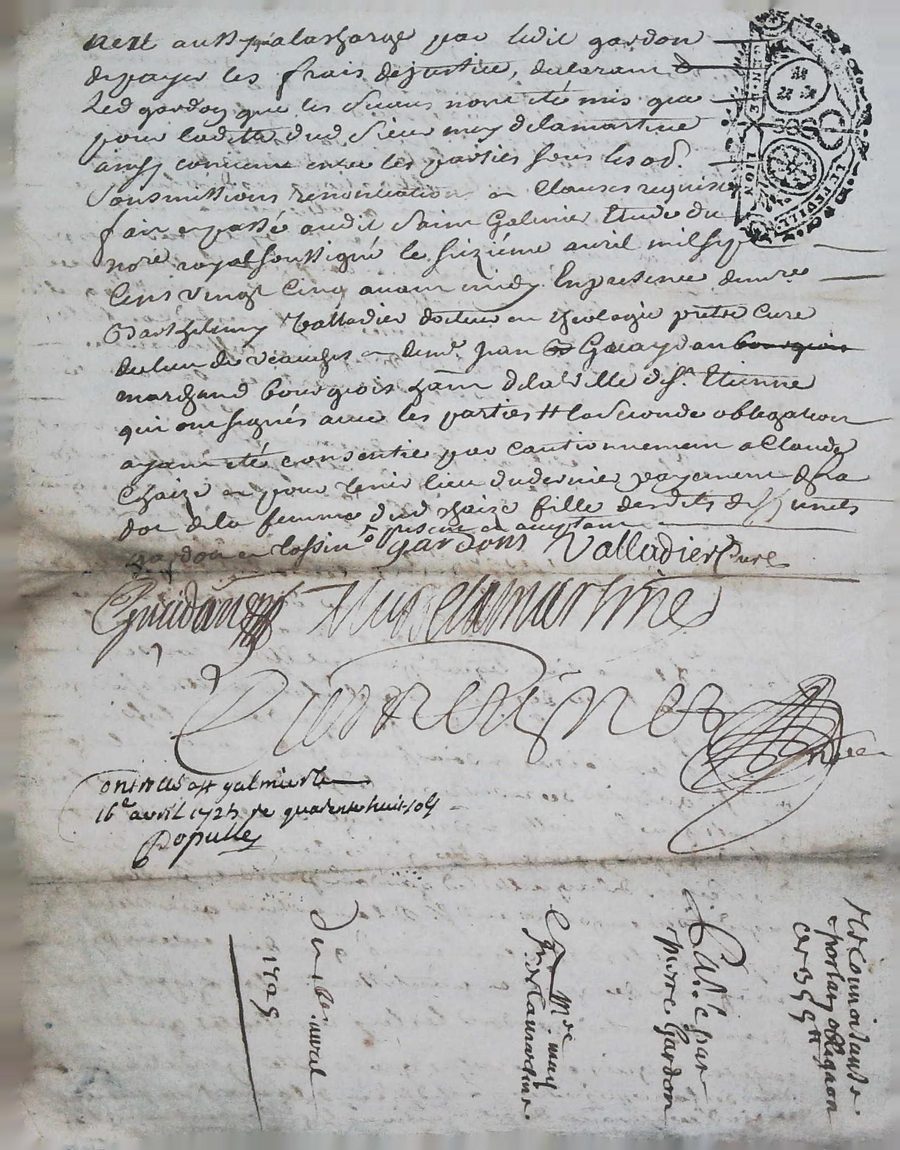 nent aussy a la charge par ledit gardon
de payer les frais de justice, declarant
Led gardon que les Sceaus nont été mis que
pour la dite dud Sieur muy delamartine
ainsy convenu entre les parties sous les ob.
Soubmissions renonciation et Clauses requises
fait et passé audit Saint Galmier Etude du
nore royal soussigné le seizieme avril mil sept
Cens vingt Cinq avant midy En presence de mre
Barthelemy Valladier docteur en theologie prettre Curé
du lieu de veauche et de mr Jean Guaydan bourgeois
marchand bourgeois de la Ville de St Etienne
qui ont signés avec les parties # la Seconde obligation
ayant été consentie par cautionnement a Claude
Chaize et pour tenir lieu du dernier payement de la
dot de la femme dud chaize fille desdits deffunts
gardon et
gardons Valladier Curé
Guaidan Muydelamartine
Contrôlé a St galmier le
16e avril 1725 r. quarente huit sols
Populle
Reconnoissance
portant obligaon
de 355ll
Passée par
pierre Gardon
a Mre muy
delamartine
du 16 avril
1725
GEN. DE
LION